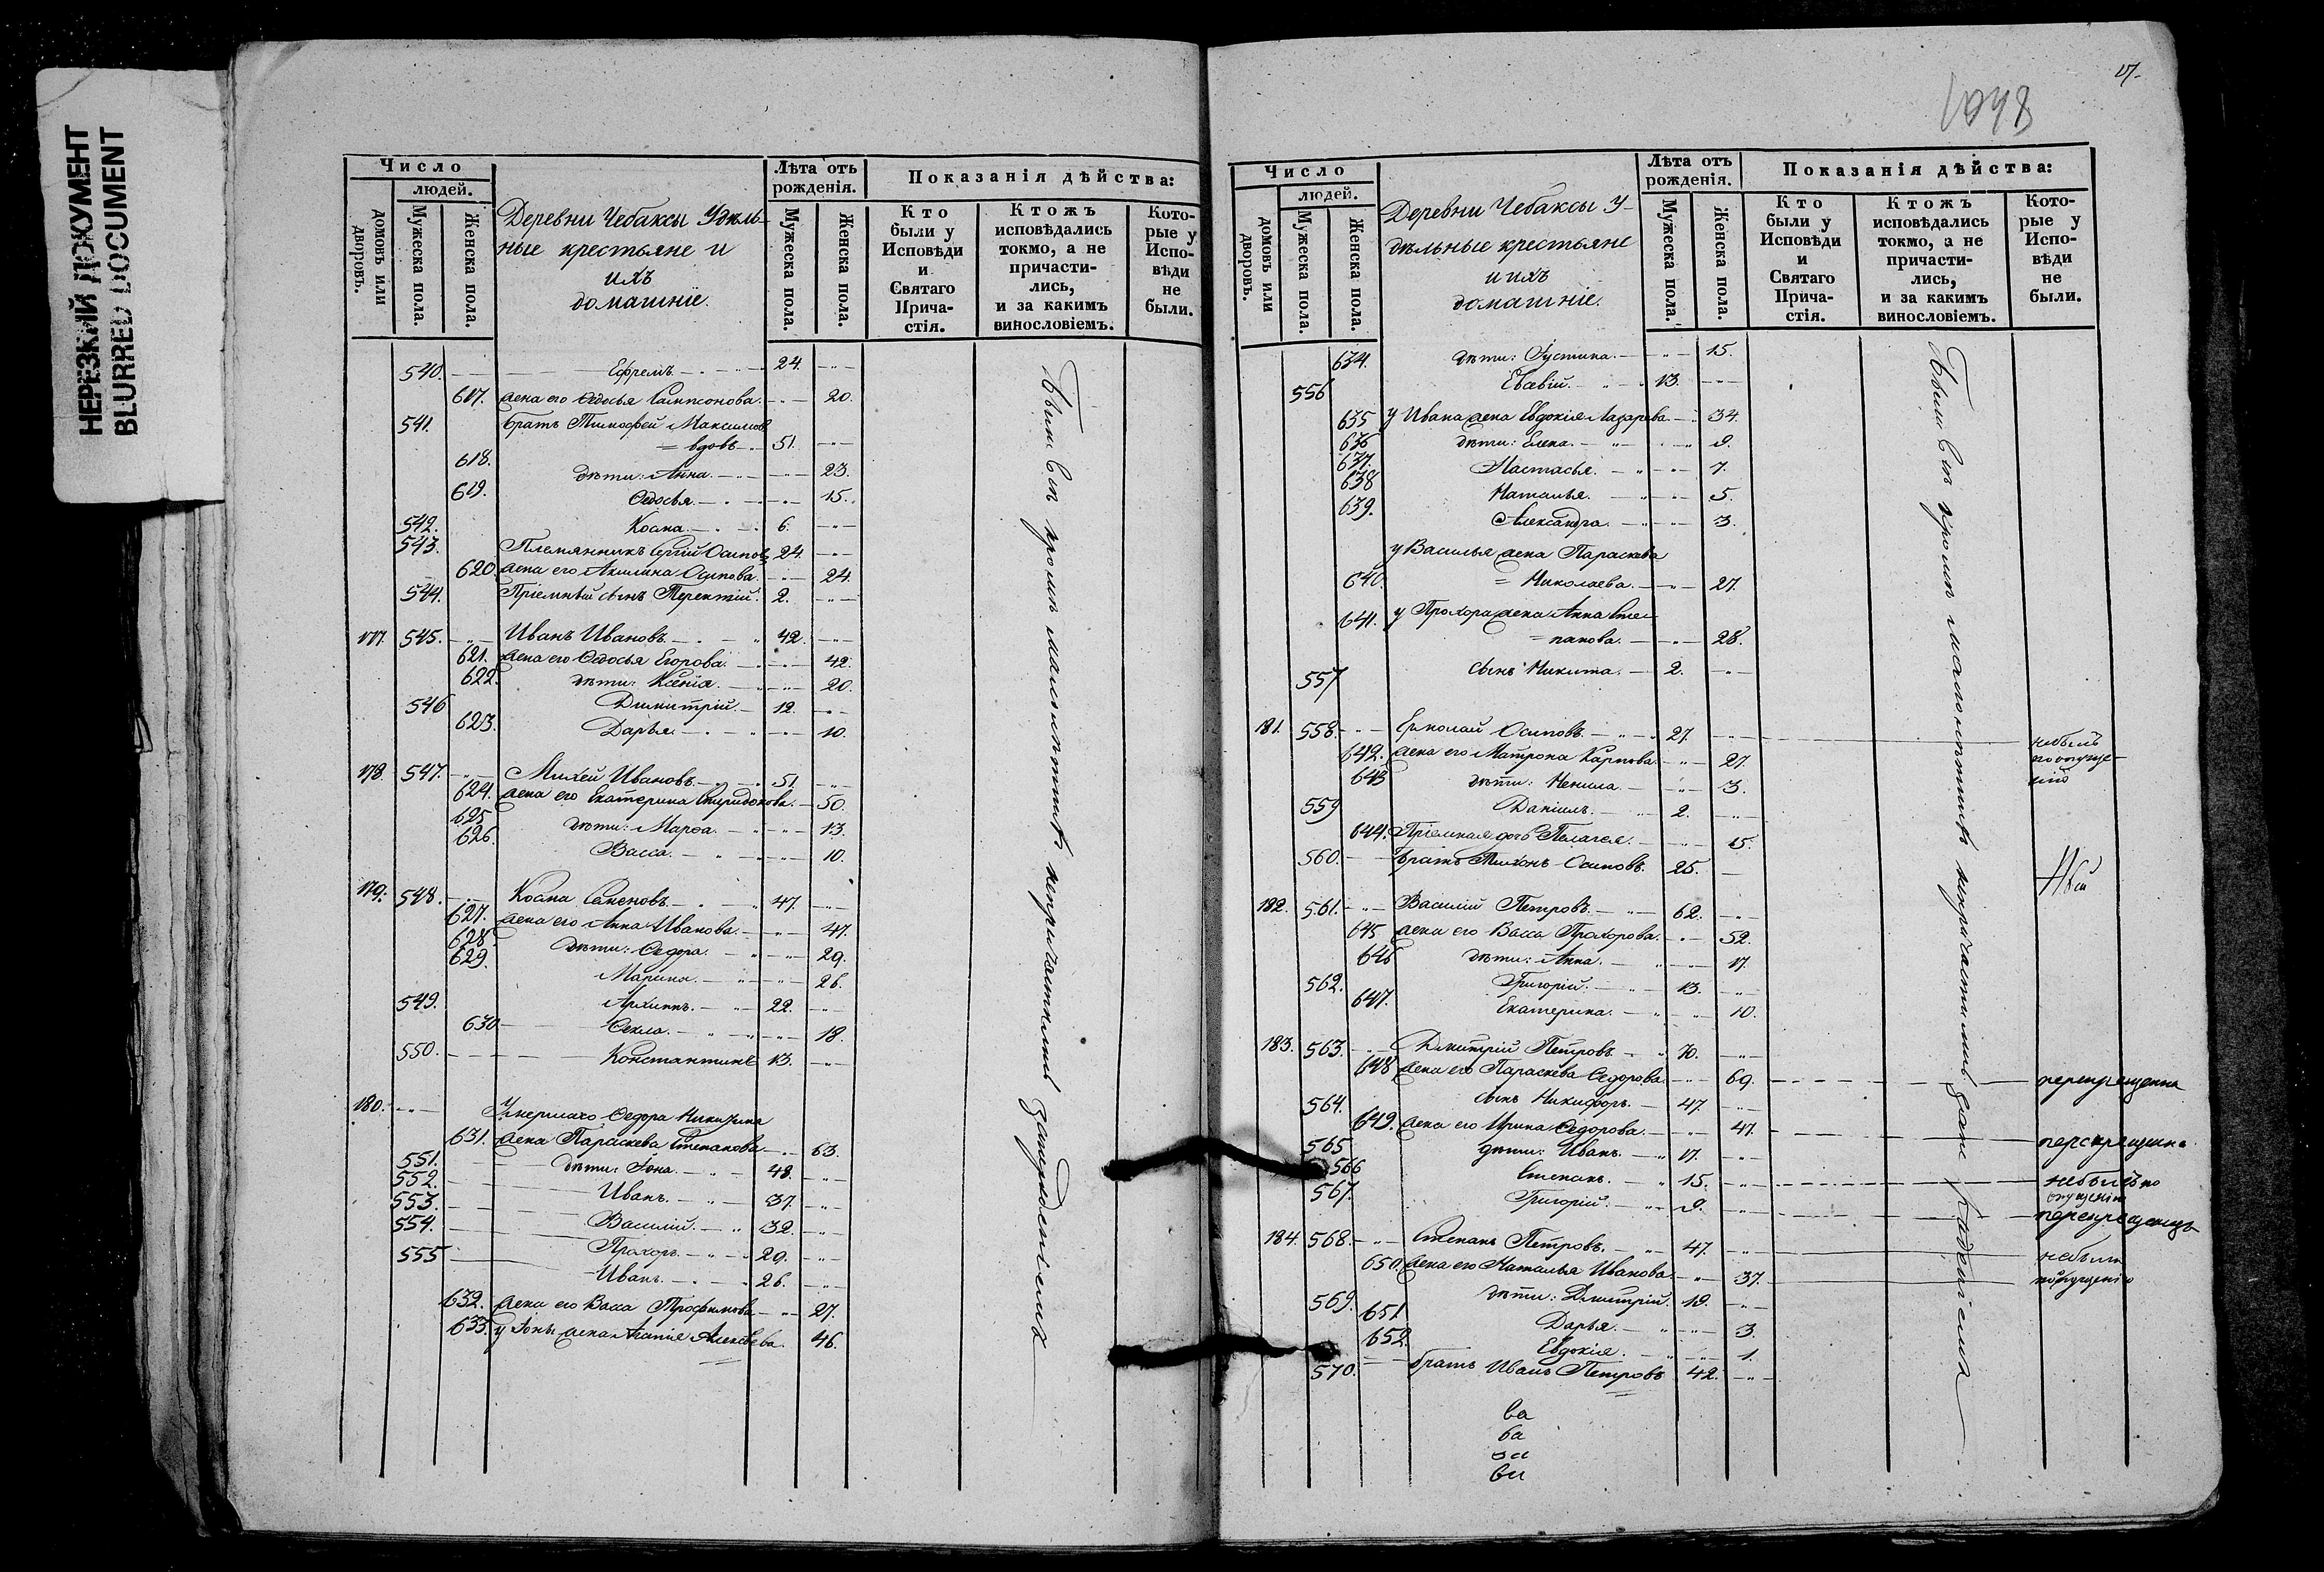 НЕРЕЗКИЙ ДОКУМЕНТ
BLURRED DOCUMENT
Число
людей.
домовъ или дворовъ.
Мужеска пола.
Женска пола.
Деревни Чебаксы Удѣль-
ные крестьяне и
ихъ
домашніе.
Лѣта отъ рожденія.
Мужеска пола.
Женска пола.
Показанія дѣйства:
Кто были у Исповѣди и Святаго Прича-стія.
Ктожъ исповѣдались токмо, а не причасти-лись, и за какимъ винословіемъ.
Кото-рые у Испо-вѣди не были.
540. Ефремъ 24.
617. жена его Ѳедосья Сампсонова. 20.
541. братъ Тимофей Максимовъ
= вдовъ 51.
618. дѣти: Анна. 23.
619. Ѳедосья 15.
542. Козма. 6.
543. Племянникъ Сергій Осиповъ 24.
620. жена его Акилина Осипова. 24.
544. Пріемный сынъ Терентій. 2.
177. 545. Иванъ Ивановъ. 42.
621. жена его Ѳедосья Егорова. 42.
622. дѣти: Ксенія. 20.
546 Димитрій. 12.
623. Дарья 10.
178. 547. Михей Ивановъ. 51.
624. жена его Екатерина Спиридонова. 50.
625 дѣти: Марѳа. 13.
626. Васса. 10.
179. 548. Козма Семеновъ. 47.
627. жена его Анна Иванова. 47.
628 дѣти: Ѳедора. 29.
629. Марина. 26.
549. Архипъ. 22.
630 Ѳекла. 18.
550. Константинъ 13.
180. Умершаго Ѳедора Никитина
631. жена Параскева Степанова 63.
551. дѣти: Іона. 48.
552. Иванъ. 37.
553. Василій. 32.
554. Прохоръ. 29.
555 Иванъ. 26.
632. жена его Васса Трофимова 27.
633. у Іоны жена Агапія Алексѣева. 46.
Были всѣ кромѣ малолѣтнихъ непричастными за нерадѣніемъ
17.
1048
Число
людей.
домовъ или дворовъ.
Мужеска пола.
Женска пола.
Деревни Чебаксы У-
дѣльные крестьяне
и ихъ
домашніе.
Лѣта отъ рожденія.
Мужеска пола.
Женска пола.
Показанія дѣйства:
Кто были у Исповѣди и Святаго Прича-стія.
Ктожъ исповѣдались токмо, а не причасти-лись, и за какимъ винословіемъ.
Кото-рые у Испо-вѣди не были.
634. дѣти: Іустина. 15.
556 13.
635 у Ивана жена Евдокія Лазарева 34.
636 дѣти: Елена. 9.
637. Настасья. 7.
638 Наталья. 5.
639. Александра. 3.
у Василья жена Параскева
640. = Николаева. 27.
641. у Прохора жена Анна Сте-
= панова. 28.
557 сынъ Никита. 2.
181. 558. Ермолай Осиповъ. 27. небылъ
642. жена его Матрона Карпова. 27. поотуще-
643 дѣти: Ненила. 3. нію
559 Даніилъ. 2.
644. Пріемная дочь Пелагея. 15.
560. братъ Тихонъ Осиповъ. 25.
182. 561. Василій Петровъ. 62.
645 жена его Васса Прохорова. 52.
646 дѣти: Анна. 17.
562. Григорій. 13.
647. Екатерина. 10.
183. 563. Дмитрій Петровъ 70.
648 жена его Параскева Ѳедорова. 69. перекрещенка
564. сынъ Никифоръ. 47.
649. жена его Ирина Ѳедорова. 47. перекрещенка
565 дѣти: Иванъ. 17.
566 Степанъ. 15. небылъ по
567. Григорій. 9. перекрещенецъ
184. 568. Степанъ Петровъ. 47. небыли
650. жена его Наталья Иванова. 37.
569. дѣти: Дмитрій. 19.
651 Дарья. 3.
652. Евдокія. 1.
570. братъ Иванъ Петровъ 42.
Были всѣ кромѣ малолѣтнихъ непричастными за нерадѣніемъ
ва
ба